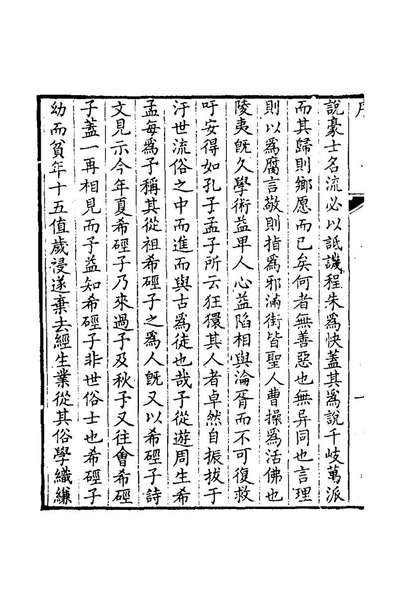 序
說豪士名流必以詆譏程朱爲快蓋其爲說千岐萬派
而其歸則鄉愿而已矣何者無善惡也無异同也言理
則以爲腐言敬則指爲邪滿街皆聖人曹操爲活佛也
陵夷既久學術益卑人心益陷相與淪胥而不可復救
吁安得如孔子孟子所云狂獧其人者卓然自振拔于
汙世流俗之中而進而與古爲徒也哉子從遊周生希
孟每爲予稱其從祖希硜子之爲人既又以希硜子詩
文見示今年夏希硜子乃來過予及秋予又往會希硜
子蓋一再相見而予益知希硜子非世俗士也希硜子
幼而貧年十五值歲祲遂棄去經生業從其俗學織縑